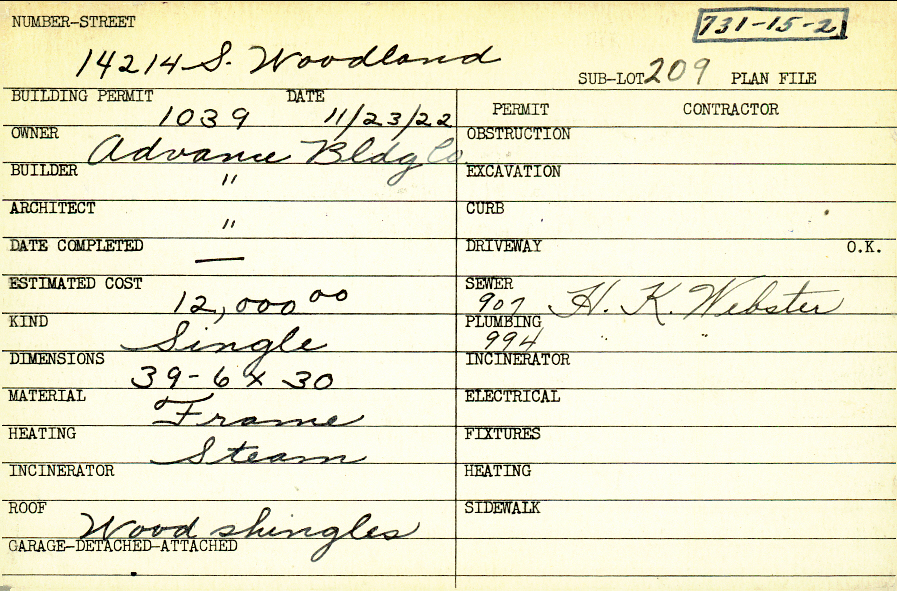 NUMBER-STREET
731-15-2
14214 S. Woodland
SUB-LOT 209 PLAN FILE
BUILDING PERMIT DATE
1039 11/23/22
OWNER Advance Bldg Co
BUILDER "
ARCHITECT "
DATE COMPLETED —
ESTIMATED COST 12,000.00
KIND Single
DIMENSIONS 39-6 x 30
MATERIAL Frame
HEATING Steam
INCINERATOR
ROOF Wood shingles
GARAGE-DETACHED-ATTACHED
PERMIT CONTRACTOR
OBSTRUCTION
EXCAVATION
CURB
DRIVEWAY O.K.
SEWER
907 H. K. Webster
PLUMBING
994 " "
INCINERATOR
ELECTRICAL
FIXTURES
HEATING
SIDEWALK